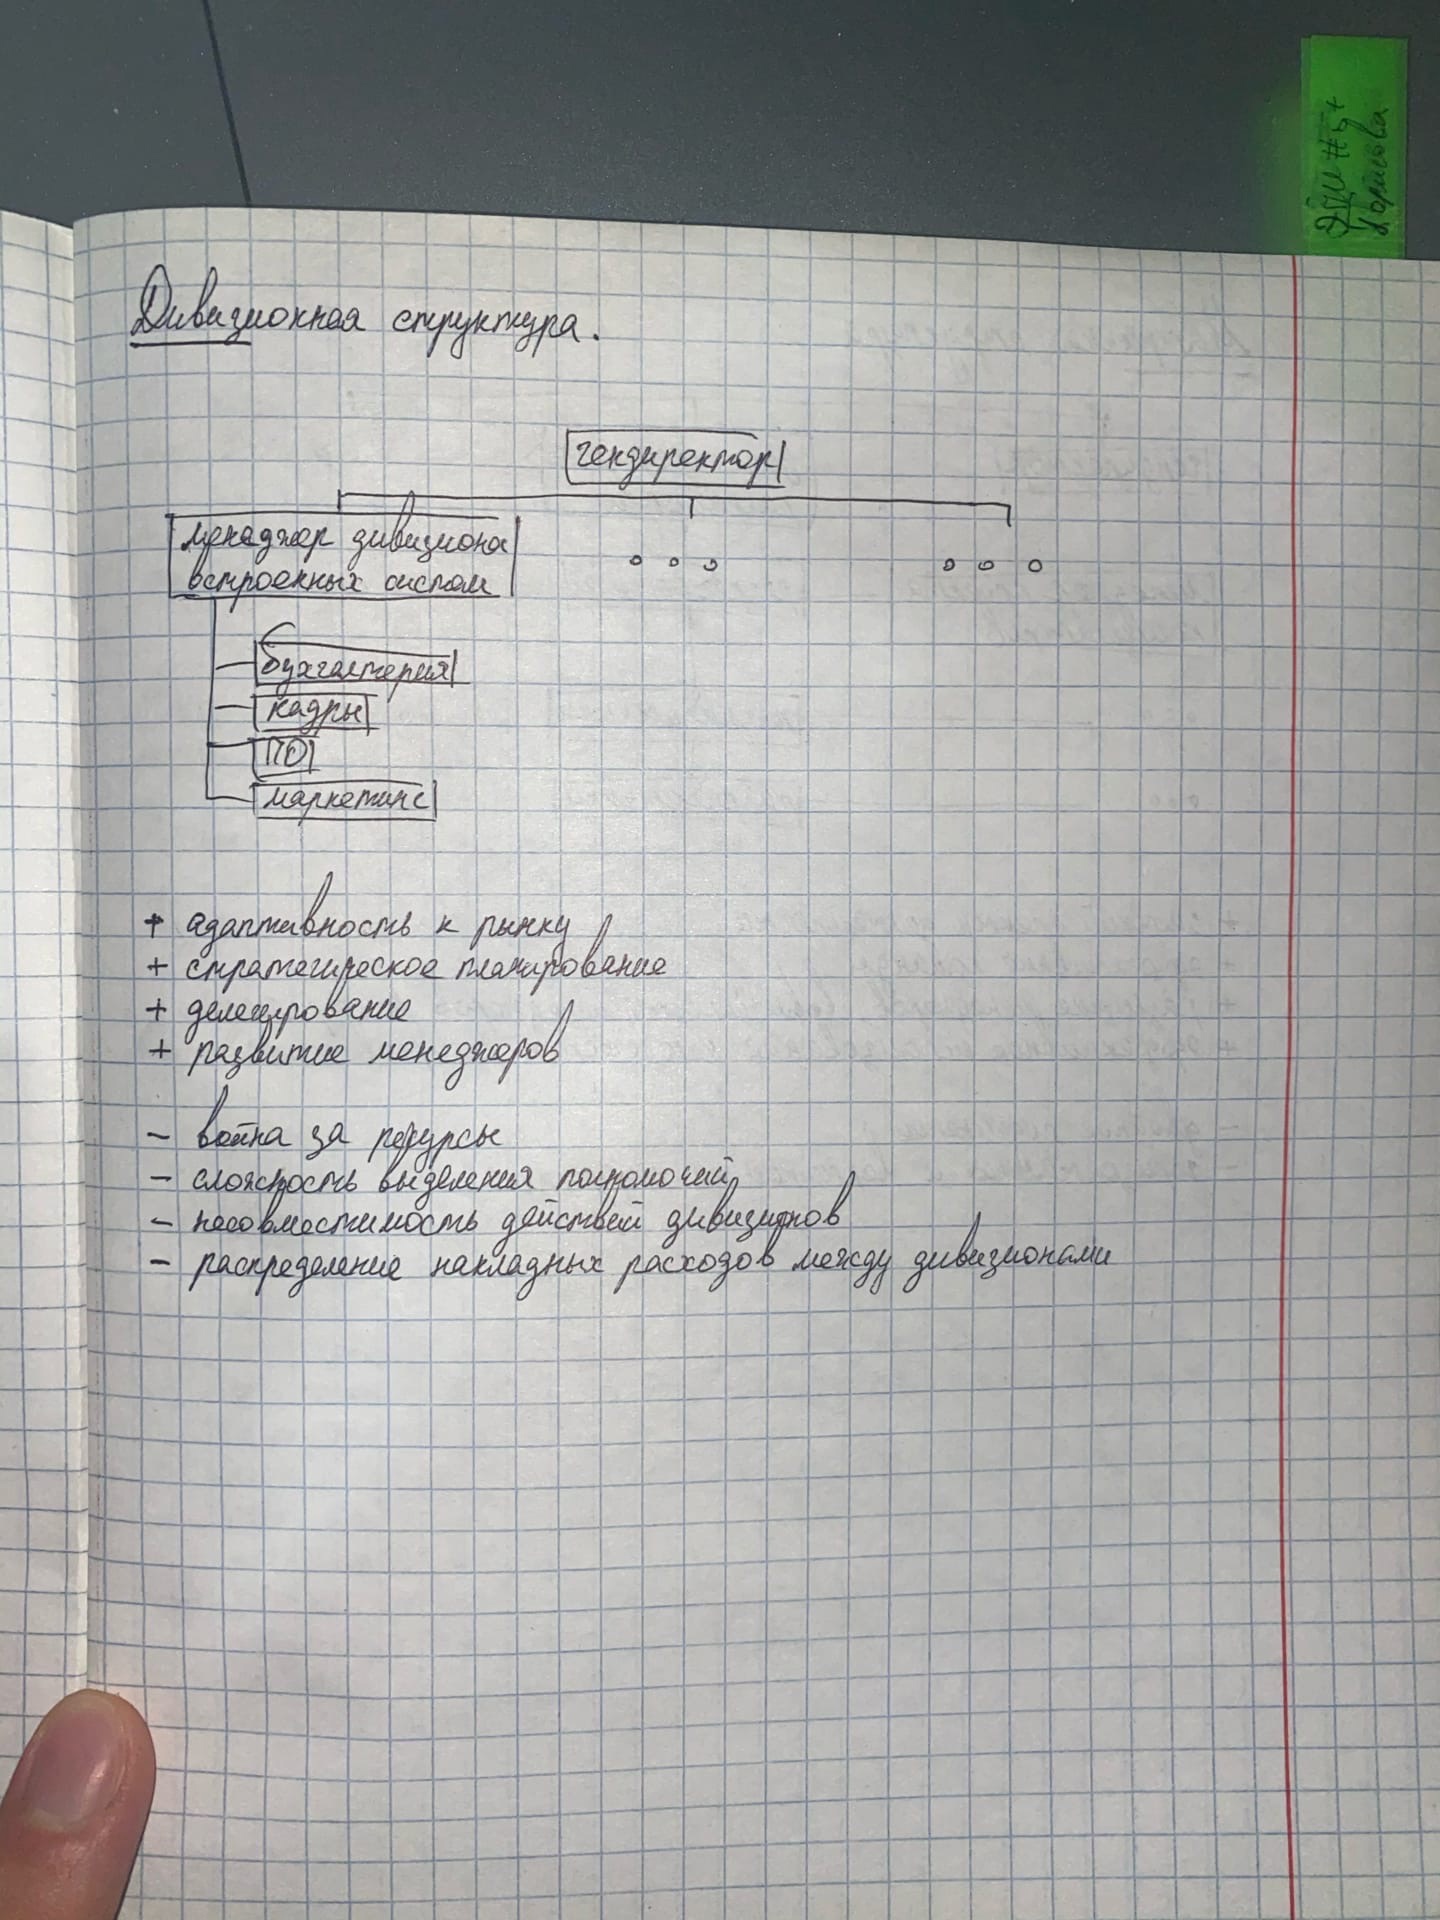 Дивизионная структура.
гендиректор
менеджер дивизиона
встроенных систем
бухгалтерия
кадры
ПО
маркетинг
+ адаптивность к рынку
+ стратегическое планирование
+ делегирование
+ развитие менеджеров
- война за ресурсы
- сложность выделения полномочий
- несовместимость действий дивизионов
- распределение накладных расходов между дивизионами